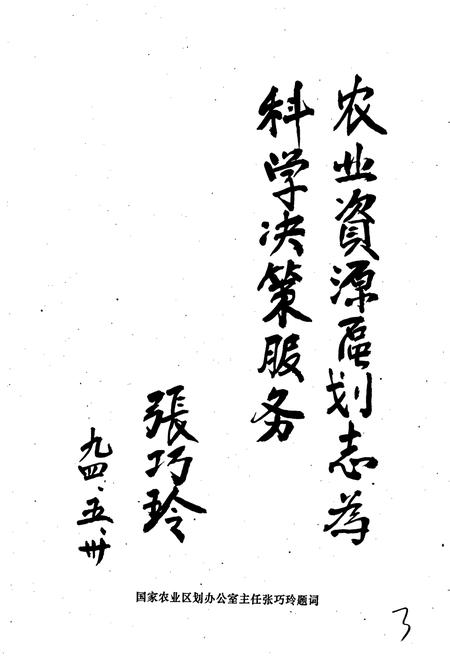 农业資源區划志為
科学决策服务
張巧玲
九四.五.卅
国家农业区划办公室主任张巧玲题词
3